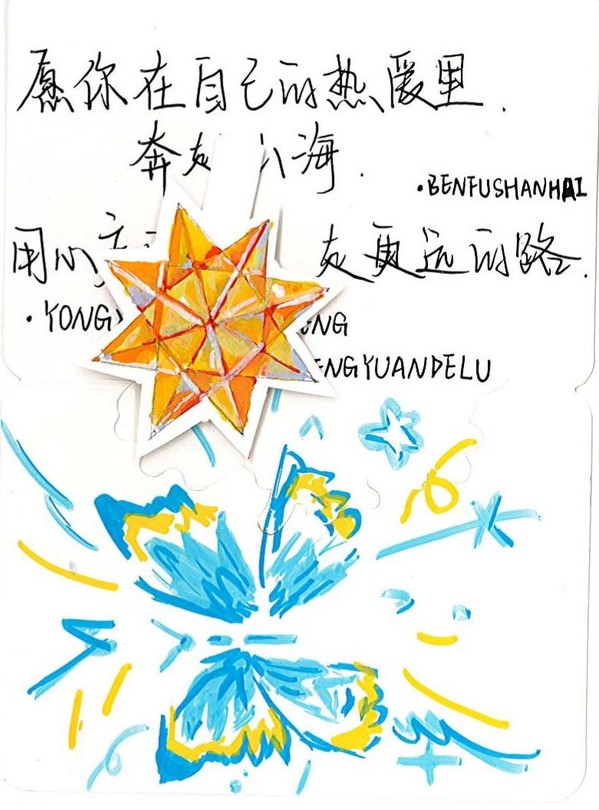 愿你在自己的热爱里.
奔赴 海.
·BENFUSHANHAI
用心 走更远的路.
·YONG NG
ENGYUANDELU